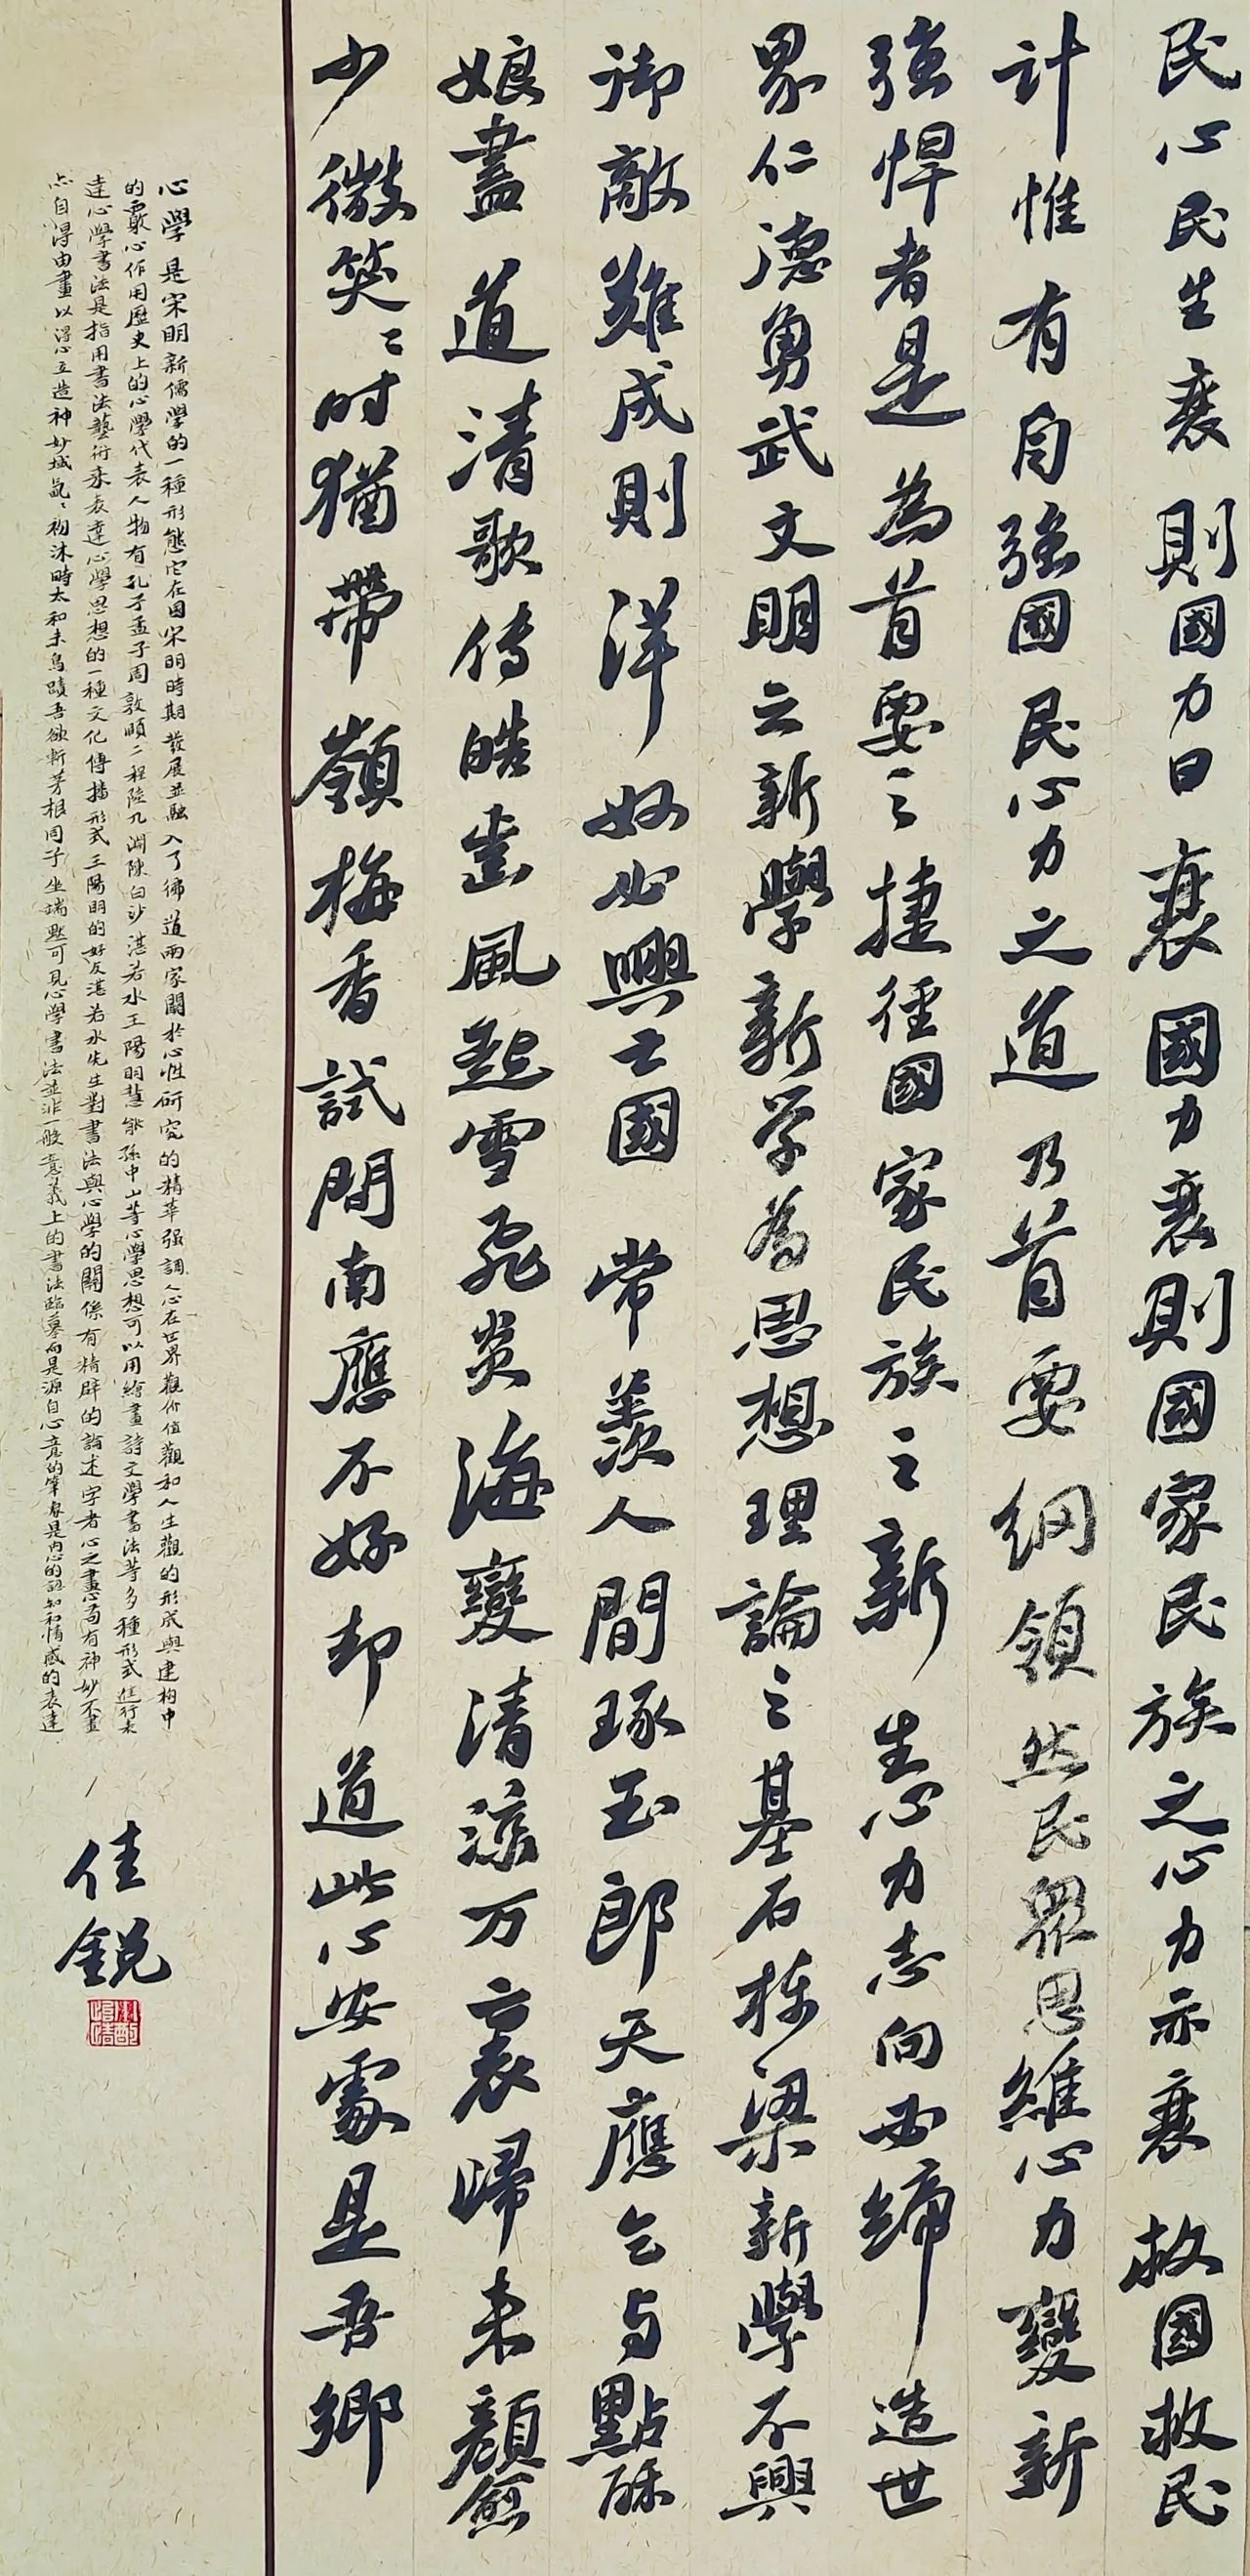 民心民生衰則國力日衰國力衰則國家民族之心力亦衰救國救民
計惟有自強國民心力之道乃首要綱領然民眾思維心力變新
強悍者是為首要之捷徑國家民族之新生心力志向西締造世
界仁德勇武文明云新學新学為思想理論之基石棟梁新學不興
御敵難成則洋奴必興亡國常羨人間琢玉郎天應乞与點酥
娘盡道清歌传皓齒風起雪飛炎海變清涼万里歸來顏愈
少微笑笑时猶帶嶺梅香試問嶺南應不好却道此心安處是吾鄉
心學是宋明新儒學的一種形態它在因宋明時期發展並融入了佛道兩家關於心性研究的精華强調人心在世界觀价值觀和人生觀的形成與建构中
的覈心作用歷史上的心學代表人物有孔子孟子周敦頤二程陸九淵陳白沙湛若水王陽明慧能孫中山等心學思想可以用繪畫詩文學書法等多種形式進行表
達心學書法是指用書法藝術來表達心學思想的一種文化傳播形式王陽明的好友湛若水先生對書法與心學的關係有精辟的論述字者心之畫心畫有神妙不畫
点自得由畫以得心互造神妙域氤氤初沐時太和未鳥蹟吾欲斬芽根同子坐端默可見心學書法並非一般意義上的書法臨摹而是源自心意的筆意是内心的認知和情感的表達
佳銳